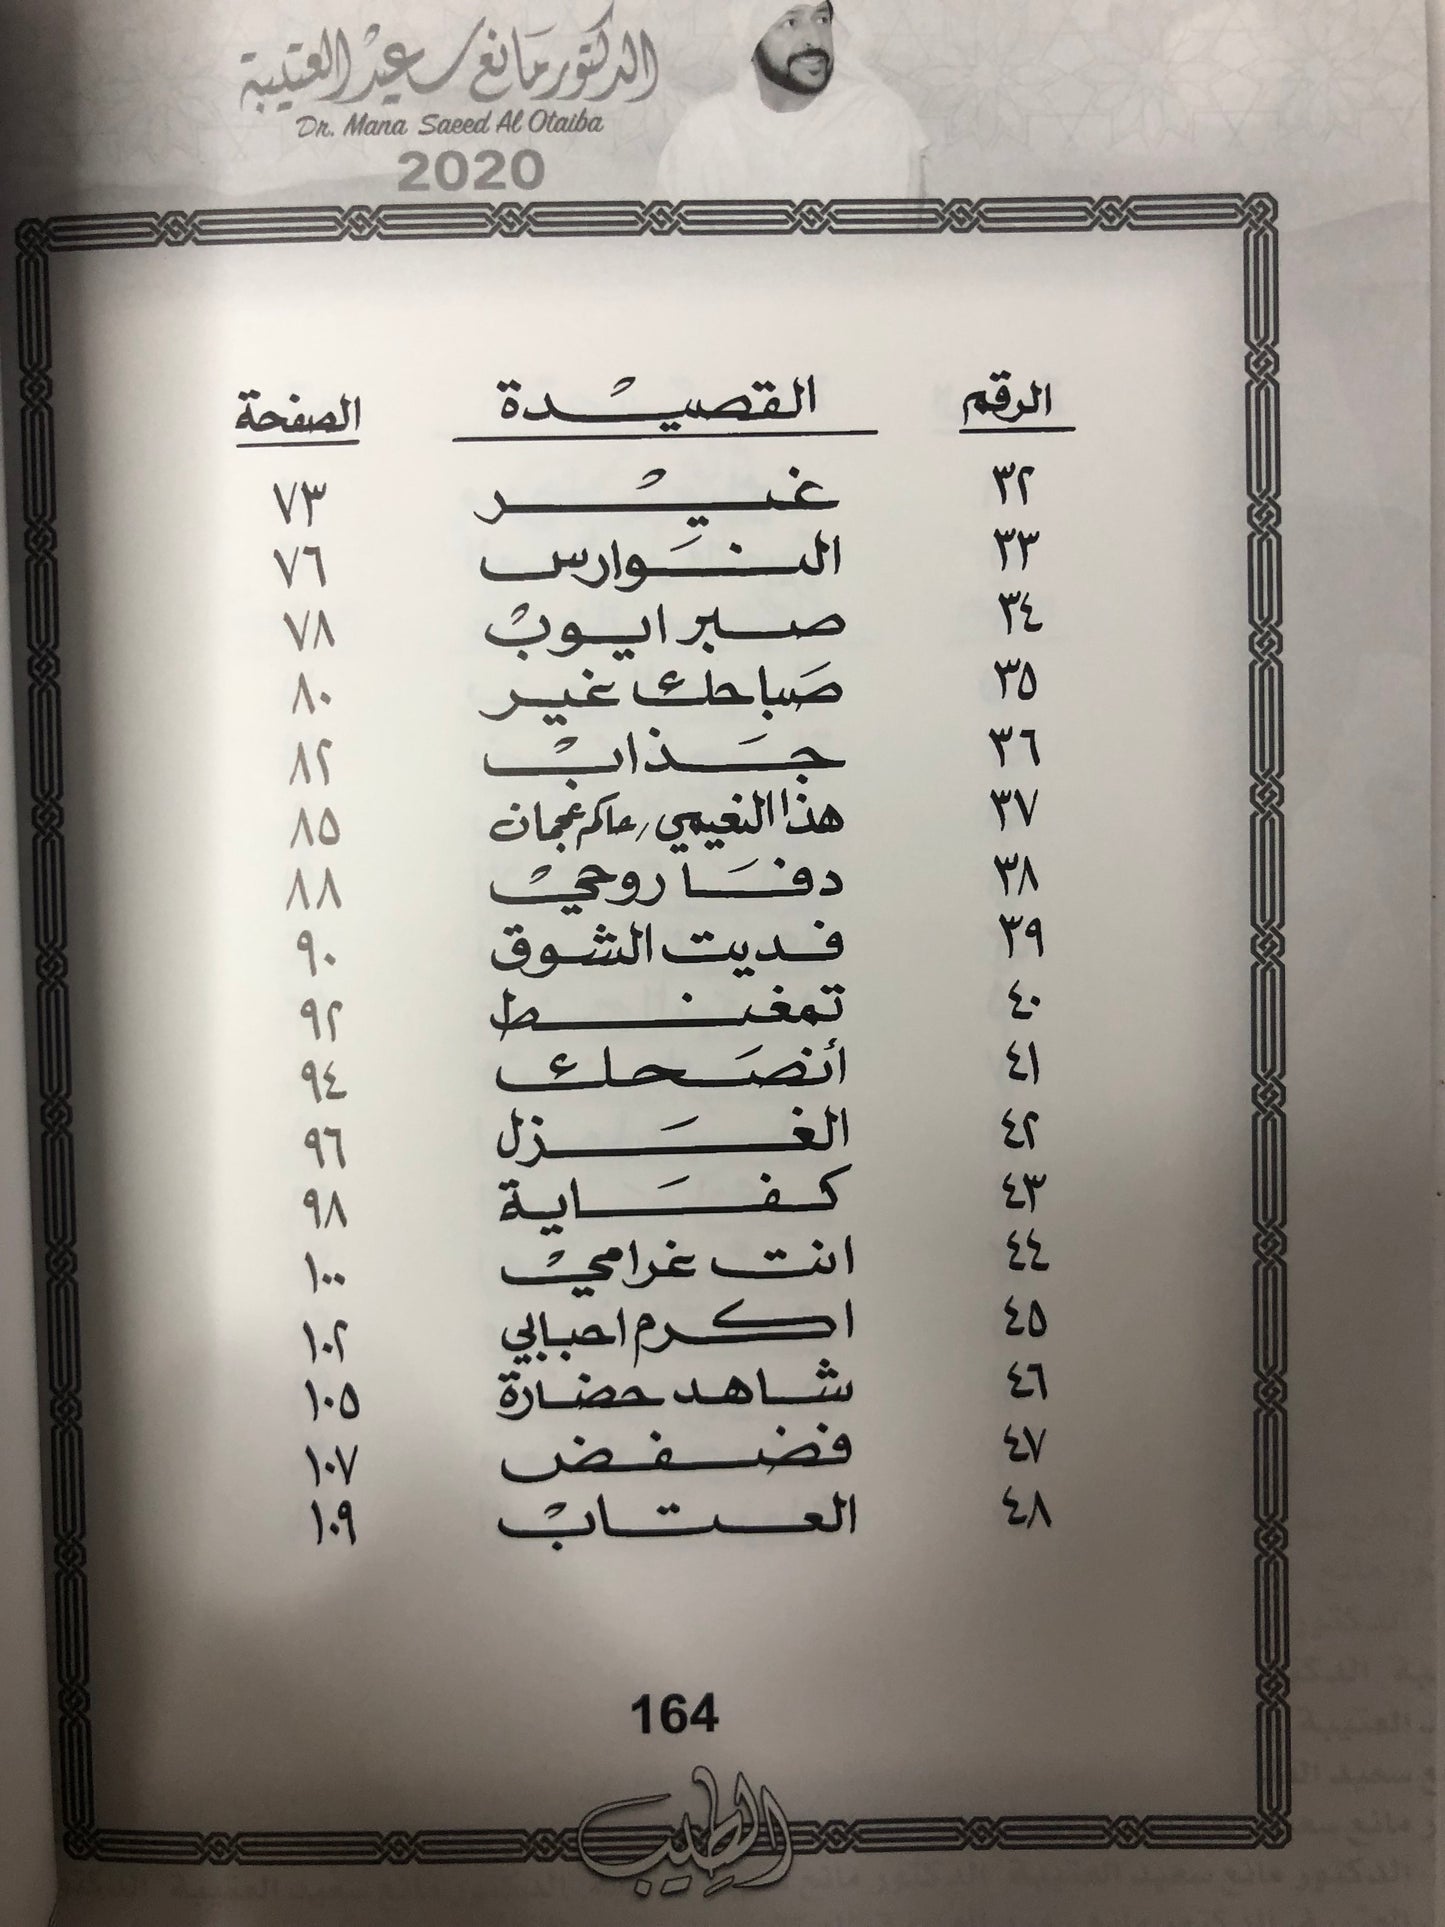 الدكتور مانع سعيد العتيبة
Dr. Mana Saeed Al Otaiba
2020
الرقم القصيدة الصفحة
٣٢ غير ٧٣
٣٣ النوارس ٧٦
٣٤ صبر ايوب ٧٨
٣٥ صباحك غير ٨٠
٣٦ جذاب ٨٢
٣٧ هذا النعيمي / حاكم عجمان ٨٥
٣٨ دفا روحي ٨٨
٣٩ فديت الشوق ٩٠
٤٠ تمغنط ٩٢
٤١ أنصحك ٩٤
٤٢ الغزل ٩٦
٤٣ كفاية ٩٨
٤٤ انت غرامي ١٠٠
٤٥ اكرم احبابي ١٠٢
٤٦ شاهد حضارة ١٠٥
٤٧ فضفض ١٠٧
٤٨ العتاب ١٠٩
164
الطيب